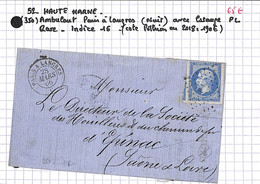 52- HAUTE MARNE -
65€
(39) Ambulant Paris à Langres (Nuit) avec Losange PL
Rare - Indice 16 (cote Pothion en 2018: 190€)
PARIS A LANGRES
MARS
Monsieur
Le Directeur de la Société
des Houillères et du chemin de fer
d'Epinac
(Saône & Loire)